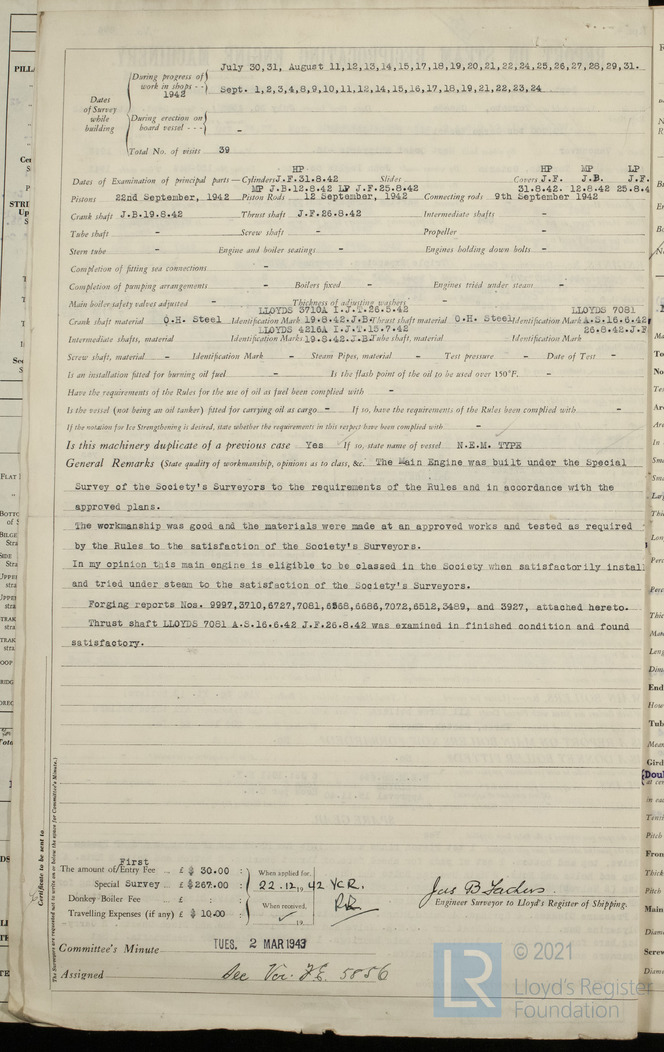 July 30,31, August 11,12,13,14,15,17,18,19,20,21,22,24,25,26,27,28,29,31.
During progress of work in shops - - 1942
Sept. 1,2,3,4,8,9,10,11,12,14,15,16,17,18,19,21,22,23,24
Dates of Survey while building
During erection on board vessel - - - -
Total No. of visits 39
HP HP MP LP
Dates of Examination of principal parts—Cylinders J.F.31.8.42 Slides Covers J.F. J.B. J.F.
MP J.B.12.8.42 LP J.F.25.8.42 31.8.42. 12.8.42 25.8.4
Pistons 22nd September, 1942 Piston Rods 12 September, 1942 Connecting rods 9th September 1942
Crank shaft J.B.19.8.42 Thrust shaft J.F.26.8.42 Intermediate shafts -
Tube shaft - Screw shaft - Propeller -
Stern tube - Engine and boiler seatings - Engines holding down bolts -
Completion of fitting sea connections -
Completion of pumping arrangements - Boilers fixed - Engines tried under steam -
Main boiler safety valves adjusted - Thickness of adjusting washers
LLOYDS 3710A I.J.T.26.5.42 LLOYDS 7081
Crank shaft material O.H. Steel Identification Mark 19.8.42.J.B. Thrust shaft material O.H. Steel Identification Mark A.S.16.6.42
LLOYDS 4216A I.J.T.15.7.42 26.8.42.J.F
Intermediate shafts, material Identification Marks 19.8.42.J.B. Tube shaft, material Identification Mark
Screw shaft, material - Identification Mark - Steam Pipes, material - Test pressure - Date of Test -
Is an installation fitted for burning oil fuel - Is the flash point of the oil to be used over 150°F. -
Have the requirements of the Rules for the use of oil as fuel been complied with -
Is the vessel (not being an oil tanker) fitted for carrying oil as cargo - If so, have the requirements of the Rules been complied with -
If the notation for Ice Strengthening is desired, state whether the requirements in this respect have been complied with -
Is this machinery duplicate of a previous case Yes If so, state name of vessel N.E.M. TYPE
General Remarks (State quality of workmanship, opinions as to class, &c. The Main Engine was built under the Special
Survey of the Society's Surveyors to the requirements of the Rules and in accordance with the
approved plans.
The workmanship was good and the materials were made at an approved works and tested as required
by the Rules to the satisfaction of the Society's Surveyors.
In my opinion this main engine is eligible to be classed in the Society when satisfactorily instal
and tried under steam to the satisfaction of the Society's Surveyors.
Forging reports Nos. 9997,3710,6727,7081,6568,6686,7072,6512,3489, and 3927, attached hereto.
Thrust shaft LLOYDS 7081 A.S.16.6.42 J.F.26.8.42 was examined in finished condition and found
satisfactory.
Certificate to be sent to
(The Surveyors are requested not to write on or below the space for Committee's Minute.)
First
The amount of Entry Fee .. £ $ 30.00 : When applied for,
Special Survey .. £ $267.00 : 22.12.19 42 YCR.
Donkey Boiler Fee £ : When received,
Travelling Expenses (if any) £ $ 10.00 : 19
Engineer Surveyor to Lloyd's Register of Shipping.
Committee's Minute TUES. 2 MAR 1943
Assigned See Vic. F.E. 5856
© 2021
Lloyd's Register
Foundation
LR